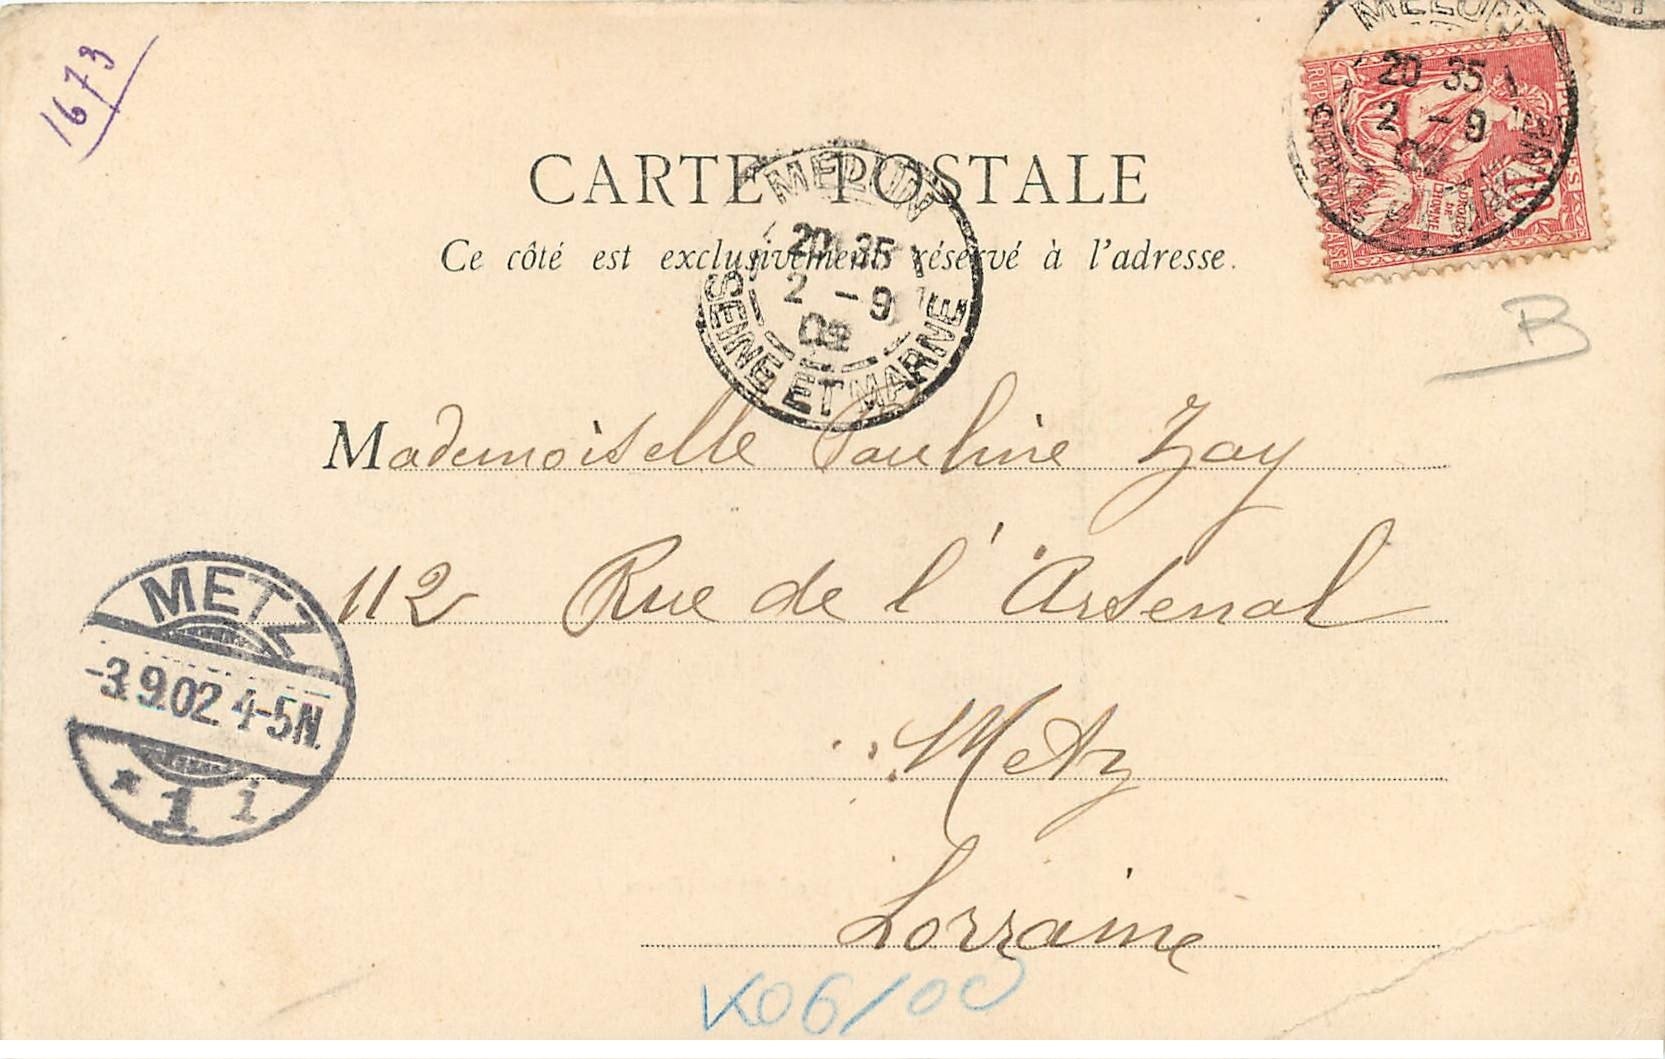 1673
MELUN
20 35
2 - 9
02
RÉP
10
DROITS DE L'HOMME
CARTE POSTALE
MELUN
20 35
2 - 9
02
SEINE ET MARNE
Ce côté est exclusivement réservé à l'adresse.
B
Mademoiselle Pauline Zay
112 Rue de l'Arsenal
Metz
Lorraine
METZ
-3.9.02. 4-5N.
* 1 i
K06/00